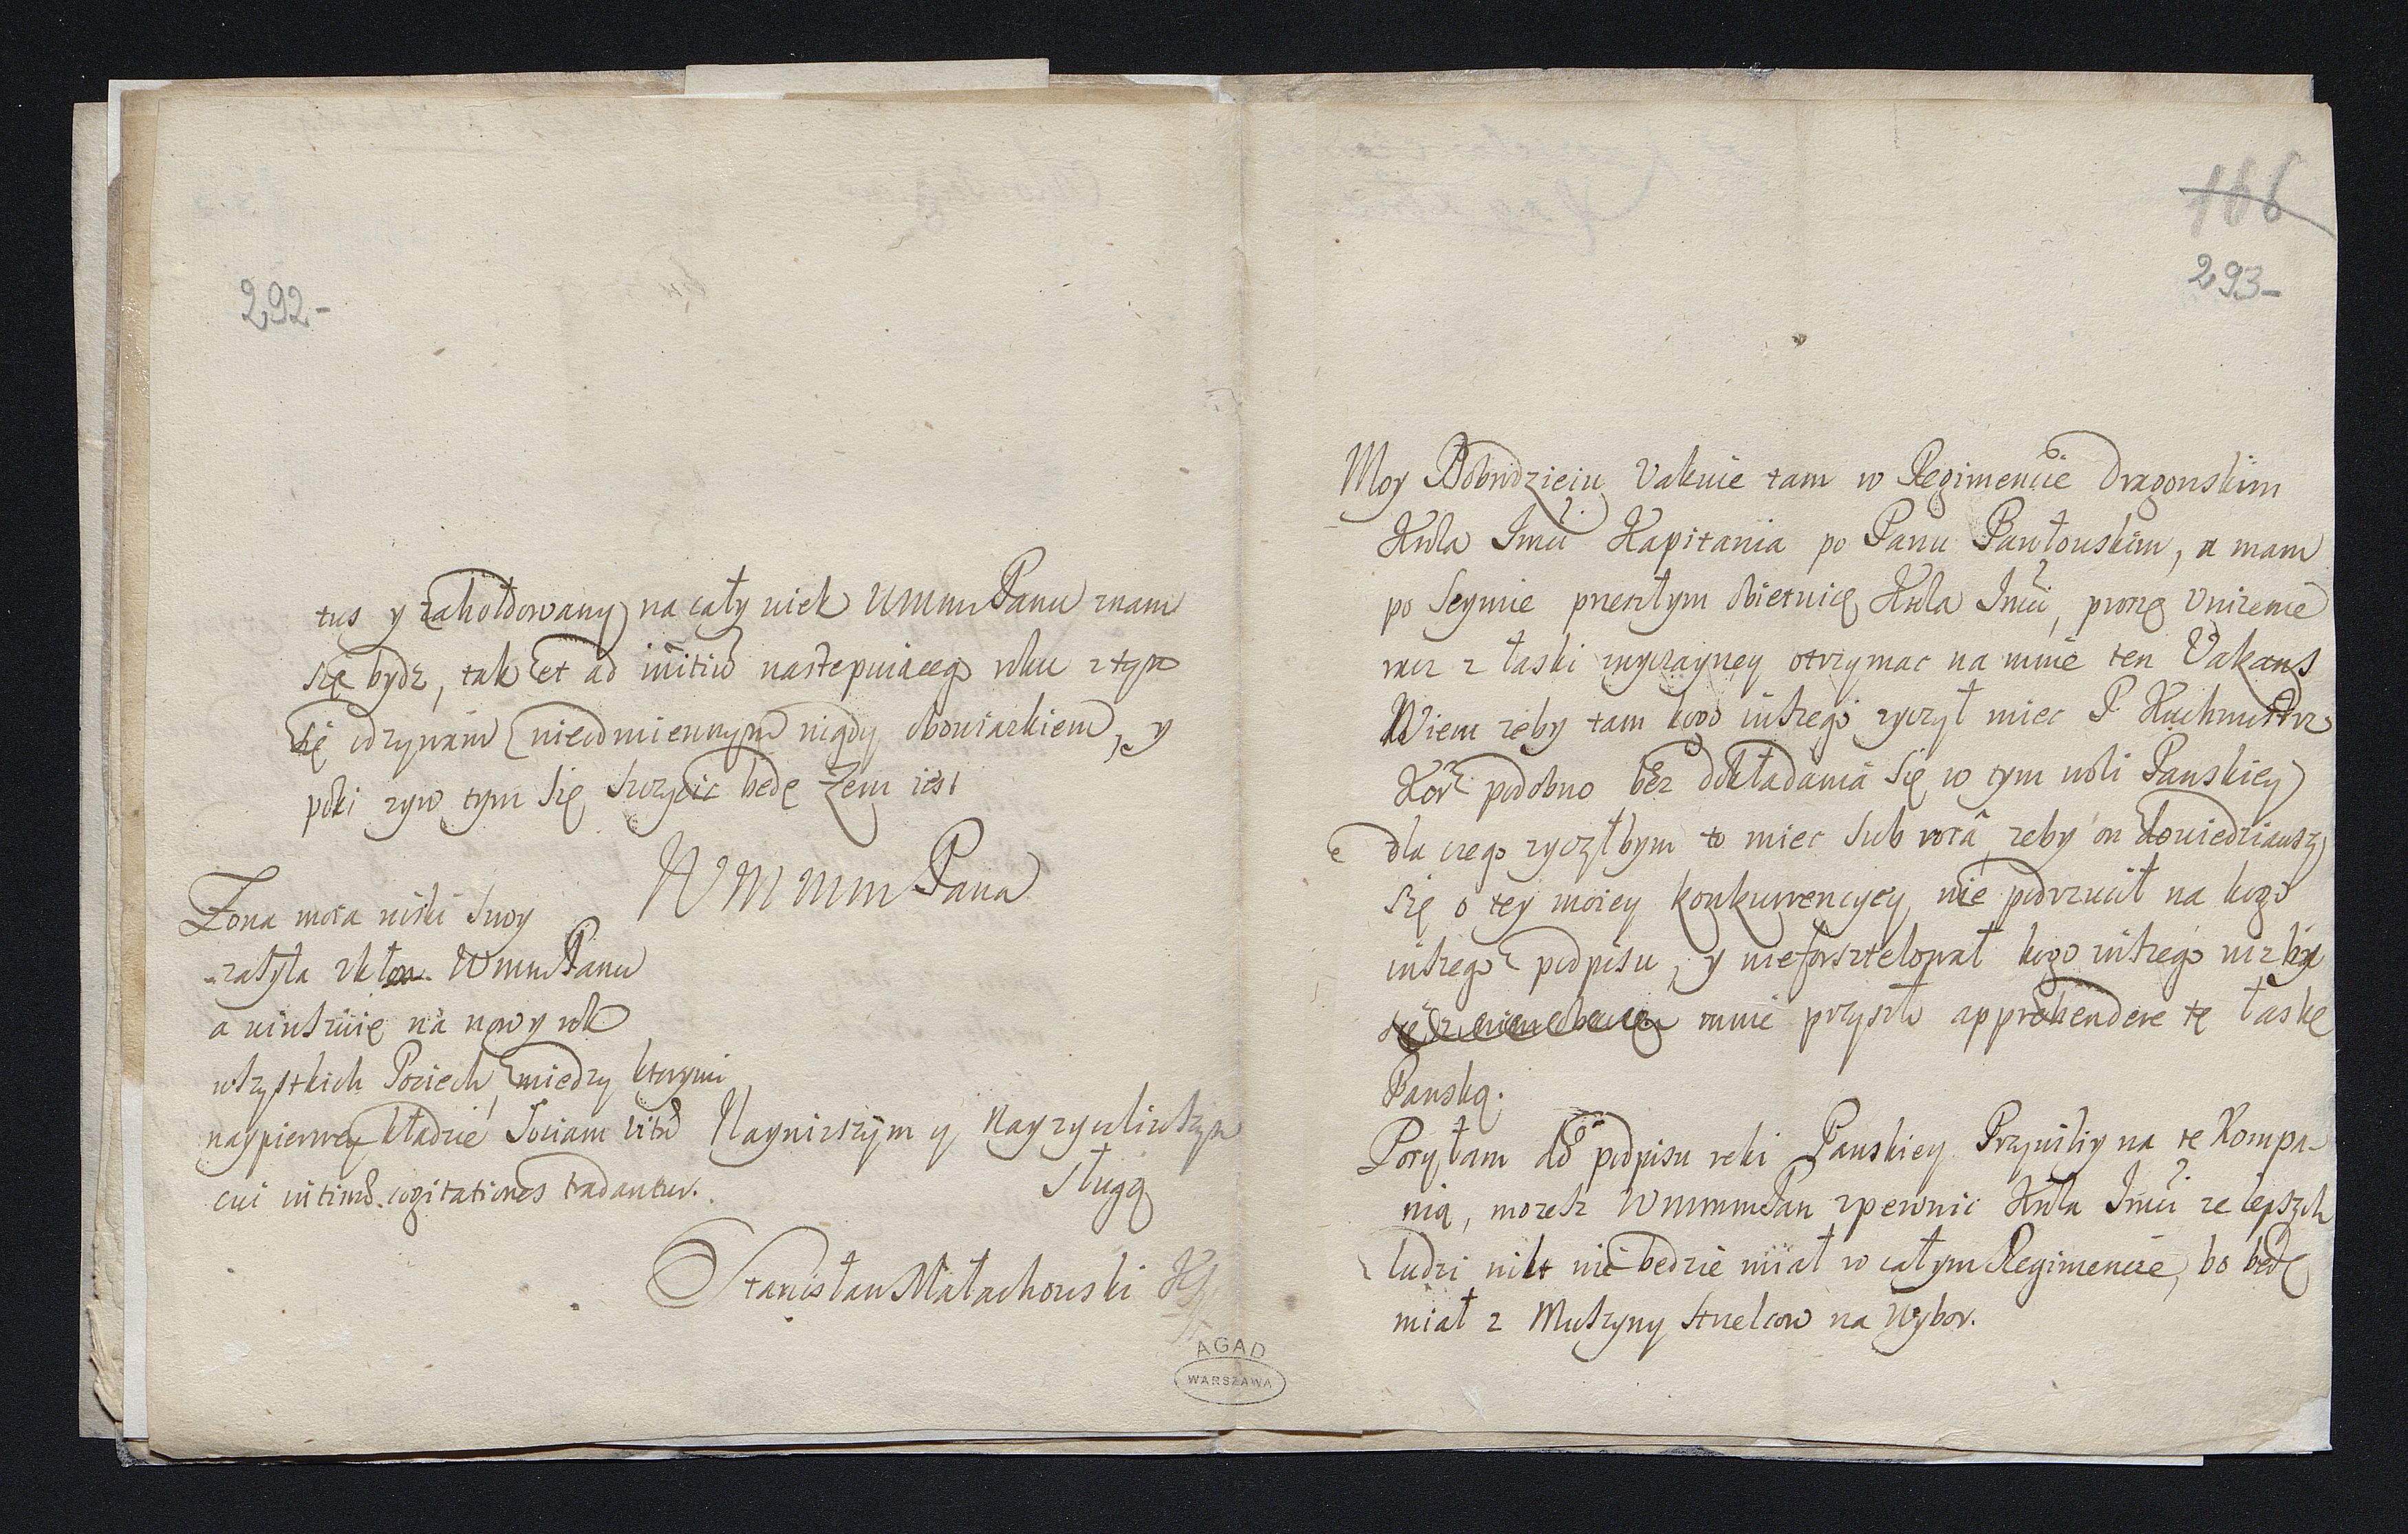 292-
tus y zahołdowany na cały wiek WMMM Panu znam
się bydz, tak et ad initiu nastepuiaceg roku z tym
się odzywam nieodmiennym nigdy obowiazkiem, y
poki zyw tym się szczycic bedę zem iest
WMMM Pana
Zona moia niski swoy
zasyła vkłon WMM Panu
a winszuię na nowy rok
wszystkich Pociech, miedzy ktorymi
naypierwey kładzie Sociam vitæ
cui intimæ cogitationes tradantur.
Nayniszszym y Nayzyczliwszym
Sługą
Stanisław Małachowski
AGAD
WARSZAWA
166
293-
Moy Dobrodzieiu Vakuie tam w Regimencie Dragonskim
Krola Imci Kapitania po Panu Pawłowskim, a mam
po Seymie przeszłym obietnicę Krola Imci, proszę Vnizenie
racz z łaski zwyczayney otrzymac na mnie ten Vakans
Wiem zeby tam kogo inszego zyczył miec P. Kuchmistrz
Kor podobno bez dokładania się w tym woli Panskiey
dla czego zyczłbym to miec sub rosâ, zeby on dowiedziawszy
się o tey moiey konkurrencyey, nie podrzucił na kogo
inszego podpisu, y nieforsztelował kogo inszego niz by
mnie przyszło apprehendere tę łaskę
Panską.
Posyłam do podpisu reki Panskiey Przywiley na te Kompa-
nią, mozesz WMMMPan vpewnic Krola Imci ze lepszych
ludzi nikt nie bedzie miał w całym Regimencie, bo bedę
miał z Muszyny strzelcow na wybor.